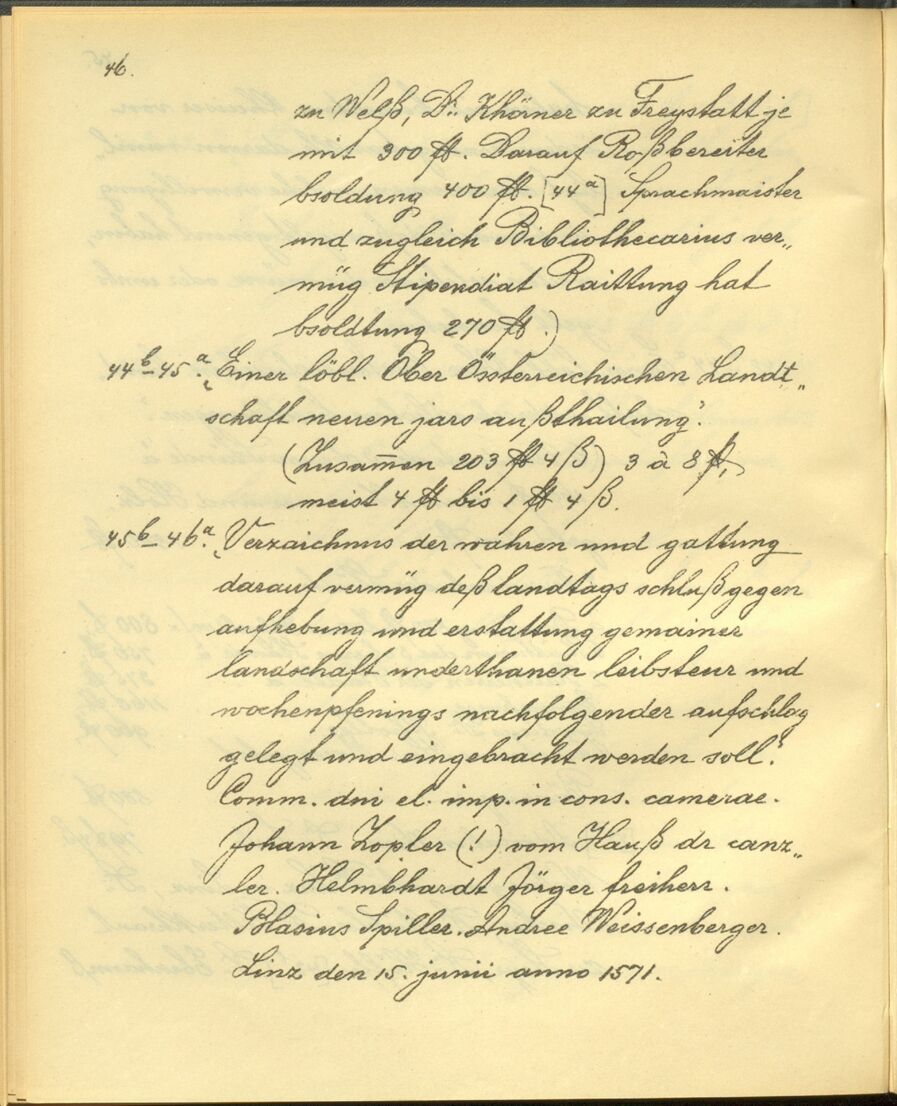 46.
zu Welß, Dr. Khörner zu Freystatt je
mit 300 fl. Darauf Roßbereiter
bsoldung 400 fl. [44a] Sprachmaister
und zugleich Bibliothecarius ver„
müg Stipendiat Raittung hat
bsoldtung 270 fl.)
44b-45a. „Einer löbl. Ober Össterreichischen Landt„
schaft neuen jars außthailung".
(Zusam̄en 203 fl 4 ß) 3 à 8 fl,
meist 4 fl bis 1 fl 4 ß.
45b-46a. „Verzaichnus der wahren und gattung
darauf vermüg deß landtags schluß gegen
aufhebung und erstattung gemainer
landschaft underthanen leibsteur und
wochenpfenings nachfolgender aufschlag
gelegt und eingebracht werden soll".
Comm. dni el. imp. in cons. camerae.
Johann Zopler (!) vom Hauß dr canz„
ler. Helmbhardt Jörger freiherr.
Blasius Spiller. Andree Weissenberger.
Linz den 15. junii anno 1571.